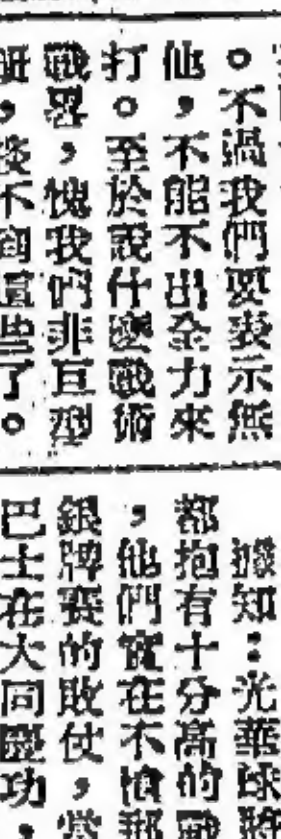 。不過我們要表示無
他,不能不出全力來
打。至於說什麼戰術
戰畧,愧我們非巨型
談不到這些了。
據知:光華球
都抱有十分高的戰
,他們實在不
銀牌賽的敗仗,當
巴士在大同慶功,